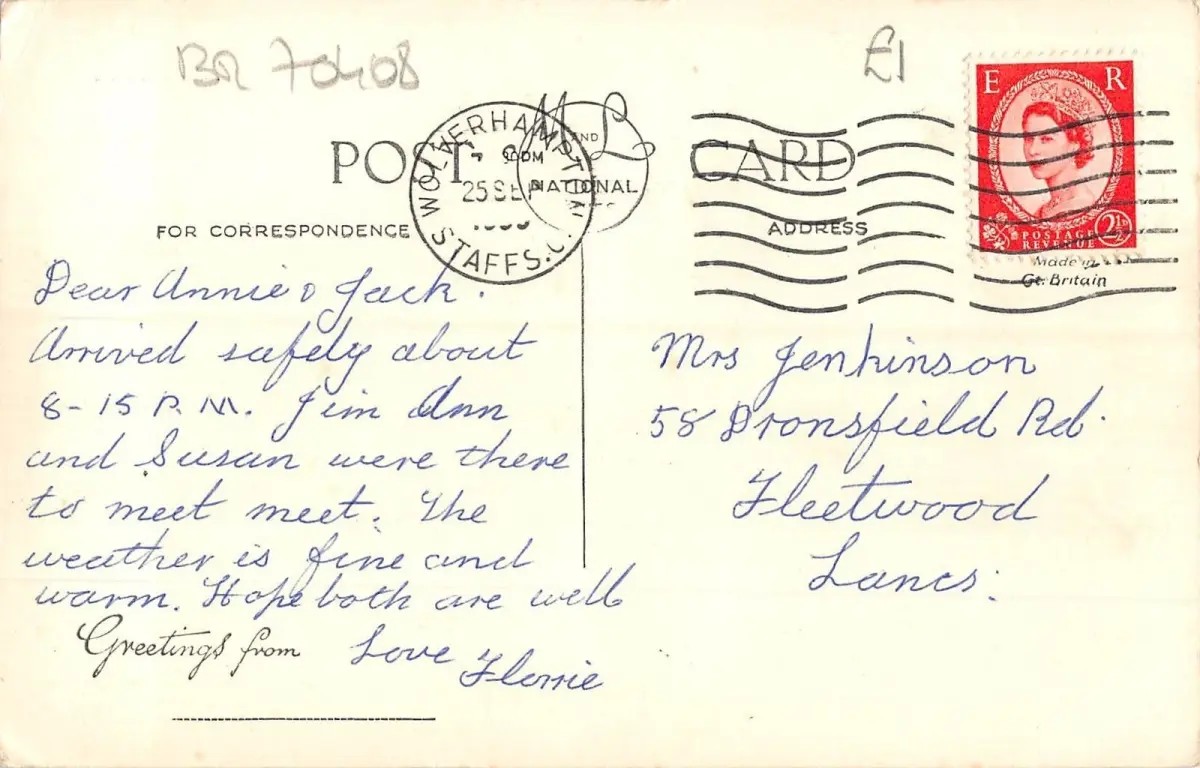 BR 70408
£1
POST CARD
M AND L
NATIONAL
WOLVERHAMPTON
STAFFS.
25 SEP
FOR CORRESPONDENCE
ADDRESS
E R
POSTAGE
REVENUE
2½
Made in
Gt. Britain
Dear Annie & Jack.
Arrived safely about
8-15 P.M. Jim Ann
and Susan were there
to meet meet. The
weather is fine and
warm. Hope both are well
Greetings from
Love Florrie
Mrs Jenkinson
58 Bronsfield Rd.
Fleetwood
Lancs: